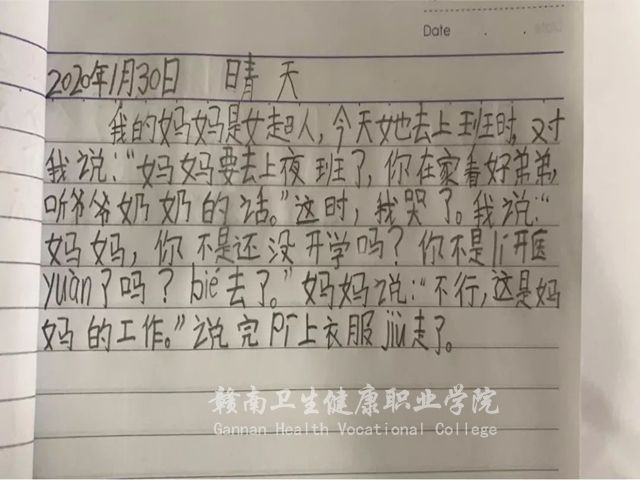 Date
2020年1月30日 晴天
我的妈妈是女超人,今天她去上班时,对
我说:“妈妈要去上夜班了,你在家看好弟弟,
听爷爷奶奶的话。”这时,我哭了。我说:“
妈妈,你不是还没开学吗?你不是lí开医
yuàn了吗?bié去了。”妈妈说:“不行,这是妈
妈的工作。”说完pī上衣服jiù走了。
赣南卫生健康职业学院
Gannan Health Vocational College